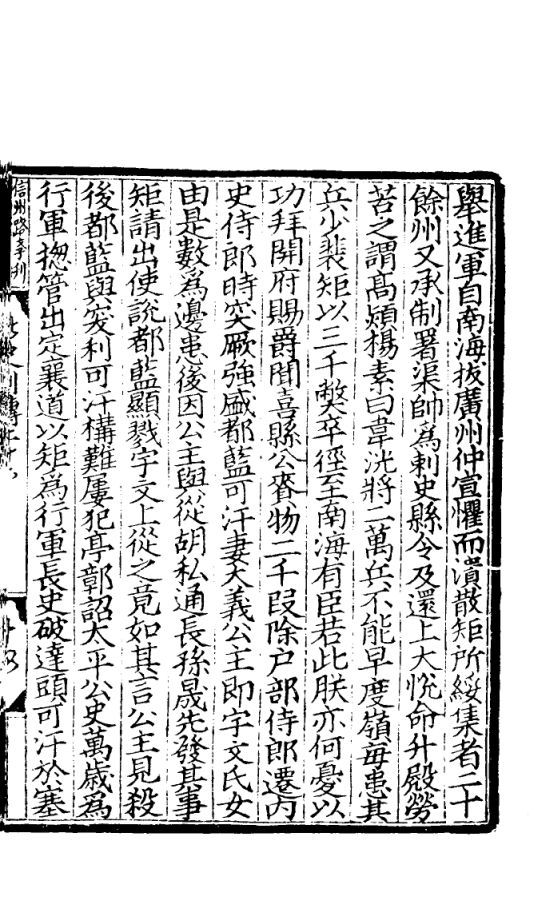 舉進軍自南海拔廣州仲宣懼而潰散矩所綏集者二十
餘州又承制署渠帥爲刺史縣令及還上大悅命升殿勞
苦之謂髙熲楊素曰韋洸將二萬兵不能早度嶺每患其
兵少裴矩以三千獘卒徑至南海有臣若此朕亦何憂以
功拜開府賜爵聞喜縣公賚物二千段除户部侍郎遷内
史侍郎時突厥強盛都藍可汗妻大義公主即宇文氏女
由是數爲邊患後因公主與從胡私通長孫晟先發其事
矩請出使說都藍顯戮宇文上從之竟如其言公主見殺
後都藍與突利可汗構難屢犯亭鄣詔太平公史萬歳爲
行軍揔管出定襄道以矩爲行軍長史破達頭可汗於塞
信州路李刊